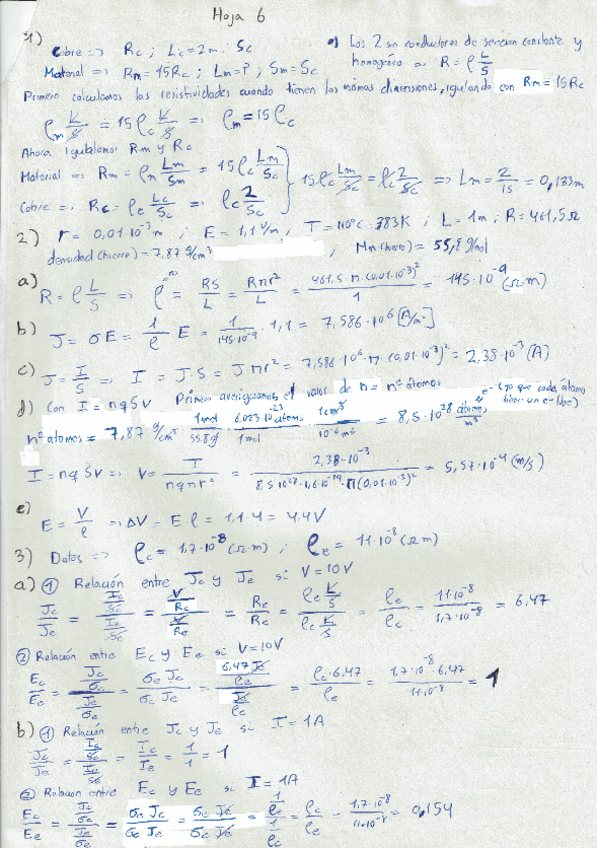 Hoja 6
1)
Cobre => Rc ; Lc=2m ; Sc
Material => Rm=15Rc ; Lm=? ; Sm=Sc
Los 2 son conductores de sección constante y
homogéneo => R = ρ L/S
Primero calculamos las resistividades cuando tienen las mismas dimensiones, igualando con Rm=15Rc
ρm L/S = 15 ρc L/S => ρm=15ρc
Ahora igualamos Rm y Rc
Material => Rm = ρm Lm/Sm = 15ρc Lm/Sc
Cobre => Rc = ρc Lc/Sc => ρc 2/Sc
15ρc Lm/Sc = ρc 2/Sc => Lm = 2/15 = 0,133m
2) r = 0,01·10⁻³m , E = 1,1 V/m , T=110°C 383K ; L = 1m ; R=461,5Ω
densidad (hierro) = 7,87 g/cm³ ; Mn(hierro) = 55,8 g/mol
a) R = ρ L/S => ρ = RS/L = Rπr²/L = 461,5·π·(0,01·10⁻³)²/1 = 145·10⁻⁹ (Ωm)
b) J = σE = 1/ρ E = 1/145·10⁻⁹ · 1,1 = 7,586·10⁶ [A/m²]
c) J = I/S => I = J·S = Jπr² = 7,586·10⁶·π·(0,01·10⁻³)² = 2,38·10⁻³ (A)
d) Con I = nqSv Primero averiguamos el valor de n = nº átomos
e⁻ (ya que cada átomo tiene un e⁻ libre)
nº átomos = 7,87 g/cm³ · 1mol/55,8g · 6,023·10²³ átomos/1mol · 1cm³/10⁻⁶m³ = 8,5·10²⁸ átomos/m³
I = nqSv => V = I/nqπr² = 2,38·10⁻³/8,5·10²⁸·1,6·10⁻¹⁹·π(0,01·10⁻³)² = 5,57·10⁻⁴ (m/s)
e)
E = V/ℓ => ΔV = E ℓ = 1,1·4 = 4,4V
3) Datos => ρc = 1,7·10⁻⁸ (Ω·m) ; ρe = 11·10⁻⁸ (Ωm)
a) ① Relación entre Jc y Je si V=10V
Jc/Je = (Ic/Sc)/(Ie/Se) = (V/Rc)/(V/Re) = Re/Rc = (ρe L/S)/(ρc L/S) = ρe/ρc = 11·10⁻⁸/1,7·10⁻⁸ = 6,47
② Relación entre Ec y Ee si V=10V
Ec/Ee = (Jc/σc)/(Je/σe) = σe Jc/σc Je = (6,47 Je/ρe)/(Je/ρc) = ρc·6,47/ρe = 1,7·10⁻⁸·6,47/11·10⁻⁸ = 1
b) ① Relación entre Jc y Je si I=1A
Jc/Je = (Ic/Sc)/(Ie/Se) = Ic/Ie = 1/1 = 1
② Relación entre Ec y Ee si I=1A
Ec/Ee = (Jc/σc)/(Je/σe) = σe Jc/σc Je = σe Je/σc Je = (1/ρe)/(1/ρc) = ρc/ρe = 1,7·10⁻⁸/11·10⁻⁸ = 0,154